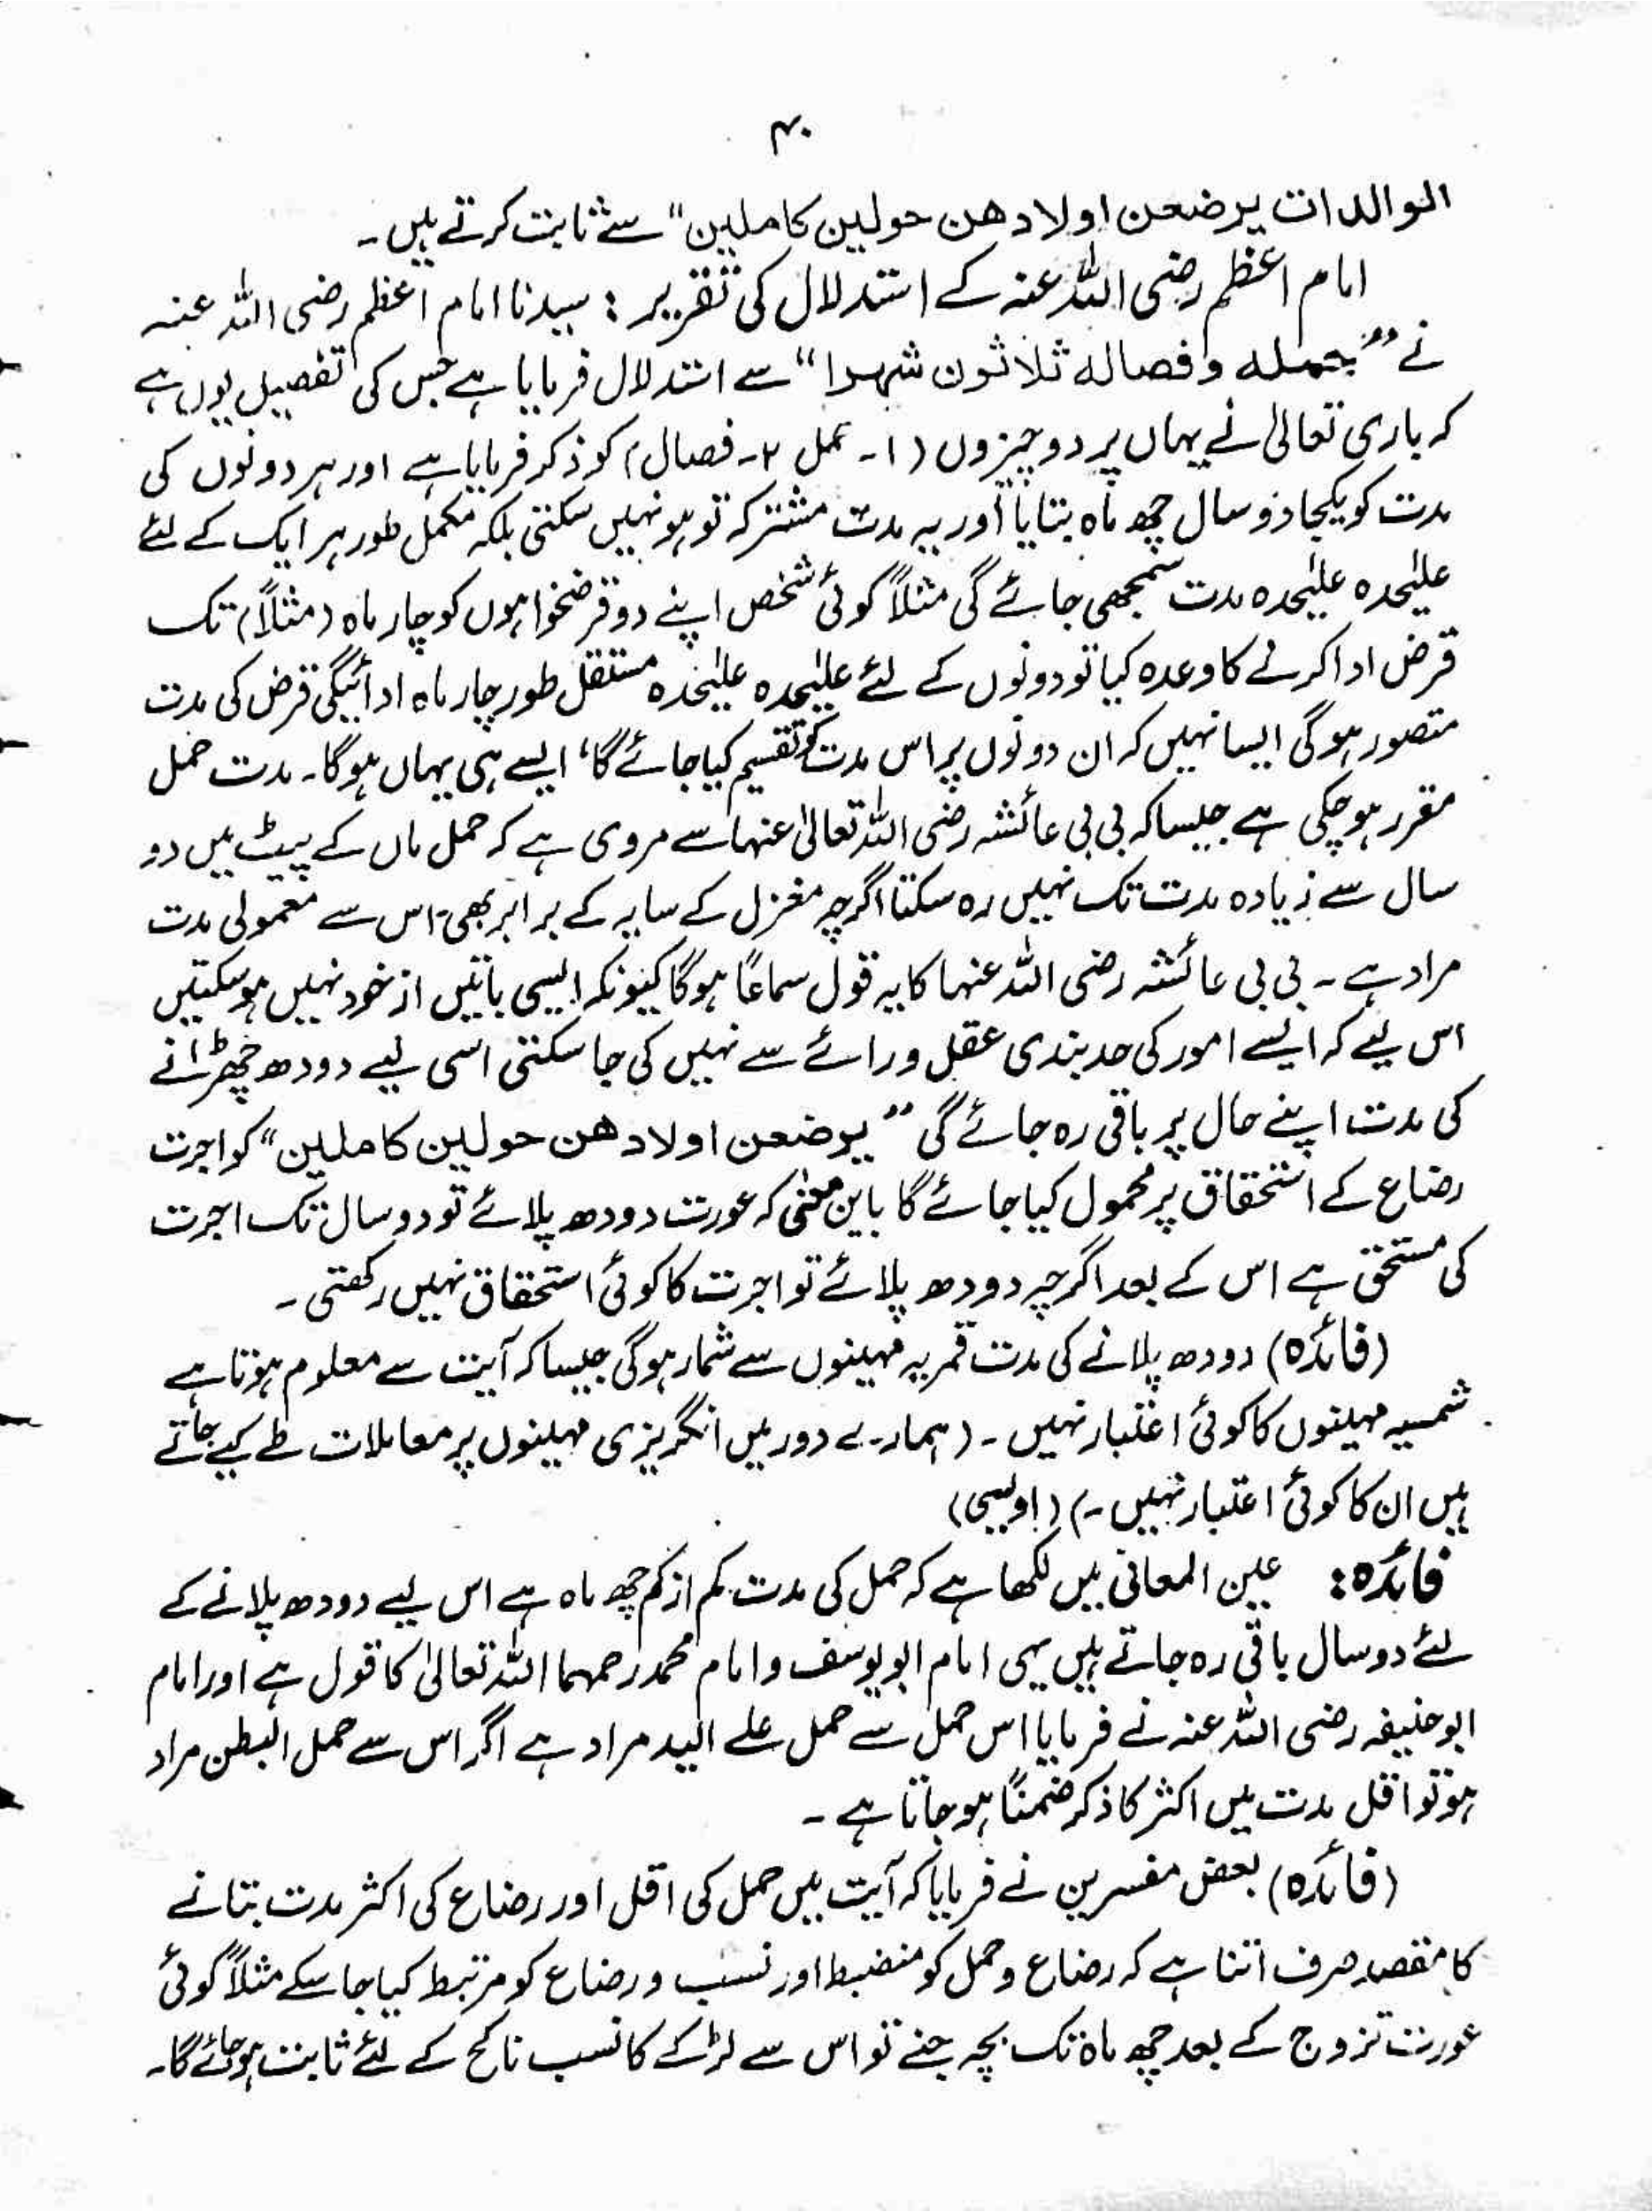 ۴۰
الوالدات یرضعن اولادھن حولین کاملین" سے ثابت کرتے ہیں۔
امام اعظم رضی اللہ عنہ کے استدلال کی تقریر: سیدنا امام اعظم رضی اللہ عنہ
نے "حملہ و فصالہ ثلاثون شہرا" سے استدلال فرمایا ہے جس کی تفصیل یوں ہے
کہ باری تعالیٰ نے یہاں پر دو چیزوں (۱۔ حمل ۲۔ فصال) کو ذکر فرمایا ہے اور ہر دونوں کی
مدت کو یکجا دو سال چھ ماہ بتایا اور یہ مدت مشترکہ تو ہو نہیں سکتی بلکہ مکمل طور ہر ایک کے لئے
علیٰحدہ علیٰحدہ مدت سمجھی جائے گی مثلاً کوئی شخص اپنے دو قرضخواہوں کو چار ماہ (مثلاً) تک
قرض ادا کرنے کا وعدہ کیا تو دونوں کے لئے علیٰحدہ علیٰحدہ مستقل طور چار ماہ ادائیگی قرض کی مدت
متصور ہوگی ایسا نہیں کہ ان دونوں پر اس مدت کو تقسیم کیا جائے گا، ایسے ہی یہاں ہوگا۔ مدت حمل
مقرر ہو چکی ہے جیسا کہ بی بی عائشہ رضی اللہ تعالیٰ عنہا سے مروی ہے کہ حمل ماں کے پیٹ میں دو
سال سے زیادہ مدت تک نہیں رہ سکتا اگرچہ مغزل کے سایہ کے برابر بھی، اس سے معمولی مدت
مراد ہے۔ بی بی عائشہ رضی اللہ عنہا کا یہ قول سماعاً ہوگا کیونکہ ایسی باتیں از خود نہیں ہو سکتیں
اس لیے کہ ایسے امور کی حد بندی عقل و رائے سے نہیں کی جا سکتی اسی لیے دودھ چھڑانے
کی مدت اپنے حال پر باقی رہ جائے گی "یرضعن اولادھن حولین کاملین" کو اجرت
رضاع کے استحقاق پر محمول کیا جائے گا باین معنی کہ عورت دودھ پلائے تو دو سال تک اجرت
کی مستحق ہے اس کے بعد اگرچہ دودھ پلائے تو اجرت کا کوئی استحقاق نہیں رکھتی۔
(فائدہ) دودھ پلانے کی مدت قمریہ مہینوں سے شمار ہوگی جیسا کہ آیت سے معلوم ہوتا ہے
شمسیہ مہینوں کا کوئی اعتبار نہیں۔ (ہمارے دور میں انگریزی مہینوں پر معاملات طے کیے جاتے
ہیں ان کا کوئی اعتبار نہیں۔) (اویسی)
فائدہ: عین المعانی میں لکھا ہے کہ حمل کی مدت کم از کم چھ ماہ ہے اس لیے دودھ پلانے کے
لئے دو سال باقی رہ جاتے ہیں یہی امام ابو یوسف و امام محمد رحمہما اللہ تعالیٰ کا قول ہے اور امام
ابو حنیفہ رضی اللہ عنہ نے فرمایا اس حمل سے حمل علے الید مراد ہے اگر اس سے حمل البطن مراد
ہو تو اقل مدت میں اکثر کا ذکر ضمناً ہو جاتا ہے۔
(فائدہ) بعض مفسرین نے فرمایا کہ آیت میں حمل کی اقل اور رضاع کی اکثر مدت بتانے
کا مقصد صرف اتنا ہے کہ رضاع و حمل کو منضبط اور نسب و رضاع کو مرتبط کیا جا سکے مثلاً کوئی
عورت تزوج کے بعد چھ ماہ تک بچہ جنے تو اس سے لڑکے کا نسب ناکح کے لئے ثابت ہو جائے گا۔